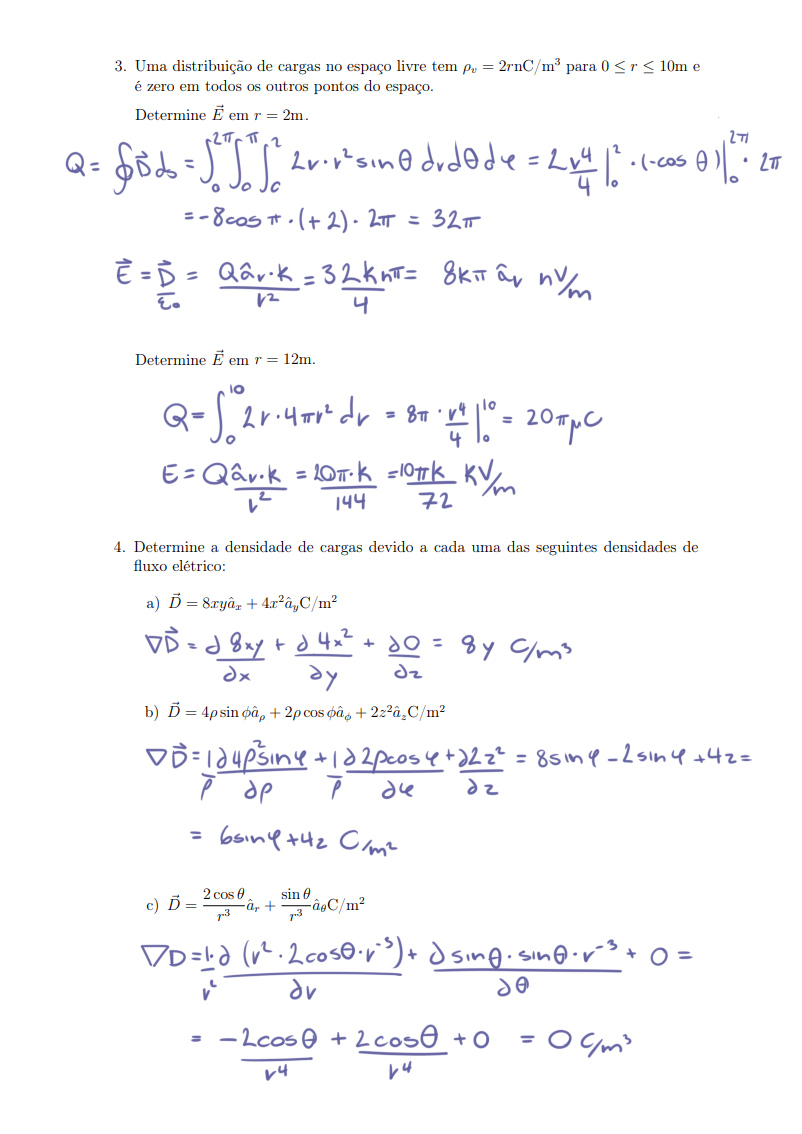 3. Uma distribuição de cargas no espaço livre tem ρᵥ = 2rnC/m³ para 0 ≤ r ≤ 10m e
é zero em todos os outros pontos do espaço.
Determine E⃗ em r = 2m.
Q = ∮D⃗ds = ∫₀^2π ∫₀^π ∫₀^2 2r·r²sinθ dr dθ dφ = 2 r⁴/4 |₀² · (-cos θ)|₀^2π · 2π
= -8cos π · (+2) · 2π = 32π
E⃗ = D⃗/ε₀ = Qâᵣ·k/r² = 32knπ/4 = 8kπ âᵣ nV/m
Determine E⃗ em r = 12m.
Q = ∫₀^10 2r·4πr² dr = 8π · r⁴/4 |₀^10 = 20πμC
E = Qâᵣ·k/r² = 20π·k/144 = 10πk/72 KV/m
4. Determine a densidade de cargas devido a cada uma das seguintes densidades de
fluxo elétrico:
a) D⃗ = 8xyâₓ + 4x²â_yC/m²
∇D⃗ = ∂8xy/∂x + ∂4x²/∂y + ∂0/∂z = 8y C/m³
b) D⃗ = 4ρ sin ϕâ_ρ + 2ρ cos ϕâ_ϕ + 2z²â_zC/m²
∇D⃗ = 1/ρ ∂4ρ²sinφ/∂ρ + 1/ρ ∂2ρcosφ/∂φ + ∂2z²/∂z = 8sinφ - 2sinφ + 4z =
= 6sinφ + 4z C/m²
c) D⃗ = 2 cos θ/r³ âᵣ + sin θ/r³ â_θC/m²
∇D = 1/r² · ∂(r²·2cosθ·r⁻³)/∂r + ∂sinθ·sinθ·r⁻³/∂θ + 0 =
= -2cosθ/r⁴ + 2cosθ/r⁴ + 0 = 0 C/m³